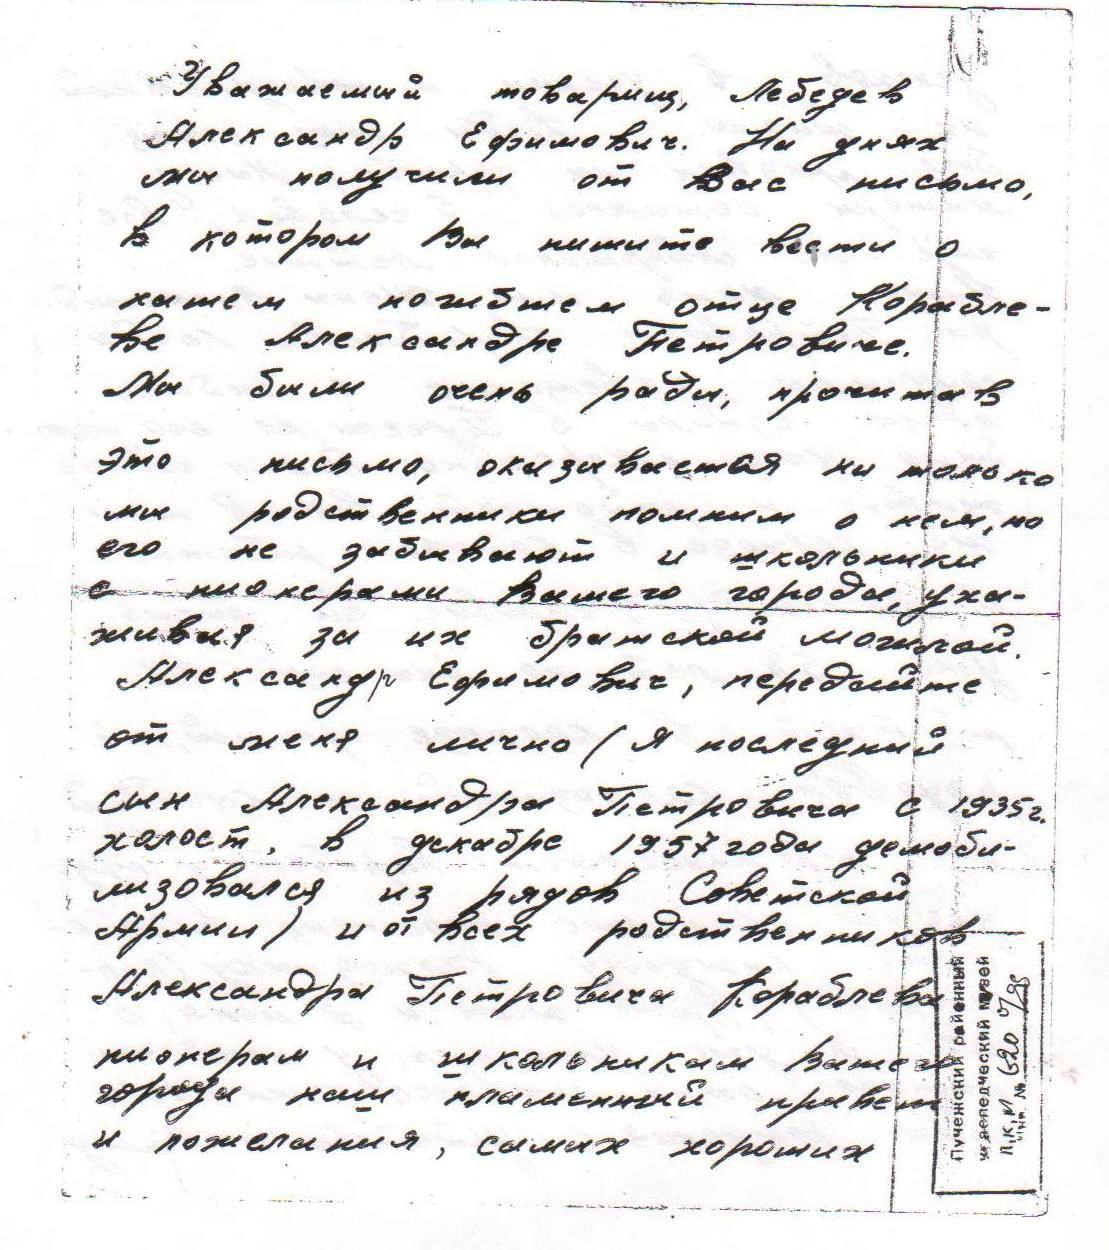 Уважаемый товарищ, Лебедев
Александр Ефимович. На днях
мы получили от Вас письмо,
в котором Вы пишите вести о
нашем погибшем отце Корабле-
ве Александре Петровиче.
Мы были очень рады, прочитав
это письмо, оказывается ни только
мы родственники помним о нем, но
его не забывают и школьники
с пионерами Вашего города, уха-
живая за их братской могилой.
Александр Ефимович, передайте
от меня лично (Я последний
сын Александра Петровича с 1935г.
холост, в декабре 1957 года демоби-
лизовался из рядов Советской
Армии) и от всех родственников
Александра Петровича Кораблева
пионерам и школьникам Вашего
города наш пламенный привет
и пожелания, самых хороших
Пучежский районный
краеведческий музей
П.К.М.
Инв. №